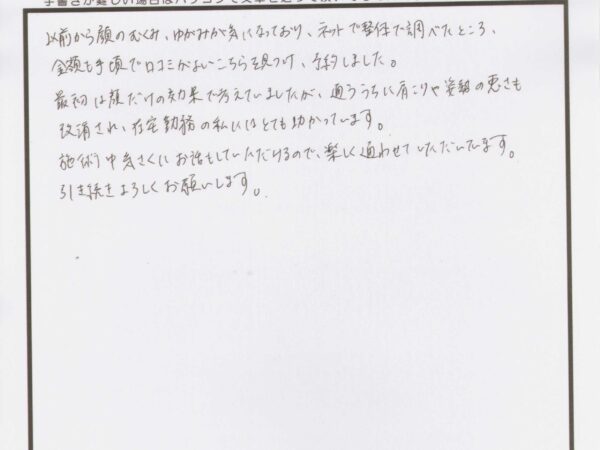 手書きが難しい場合はパソコンで文章を
以前から顔のむくみ、ゆがみが気になっており、ネットで整体で調べたところ、
金額も手頃で口コミがよいこちらを見つけ、予約しました。
最初は顔だけの効果で考えていましたが、通ううちに肩こりや姿勢の悪さも
改消され、在宅勤務の私にはとても助かっています。
施術中気さくにお話もしていただけるので、楽しく通わせていただいてます。
引き続きよろしくお願いします。